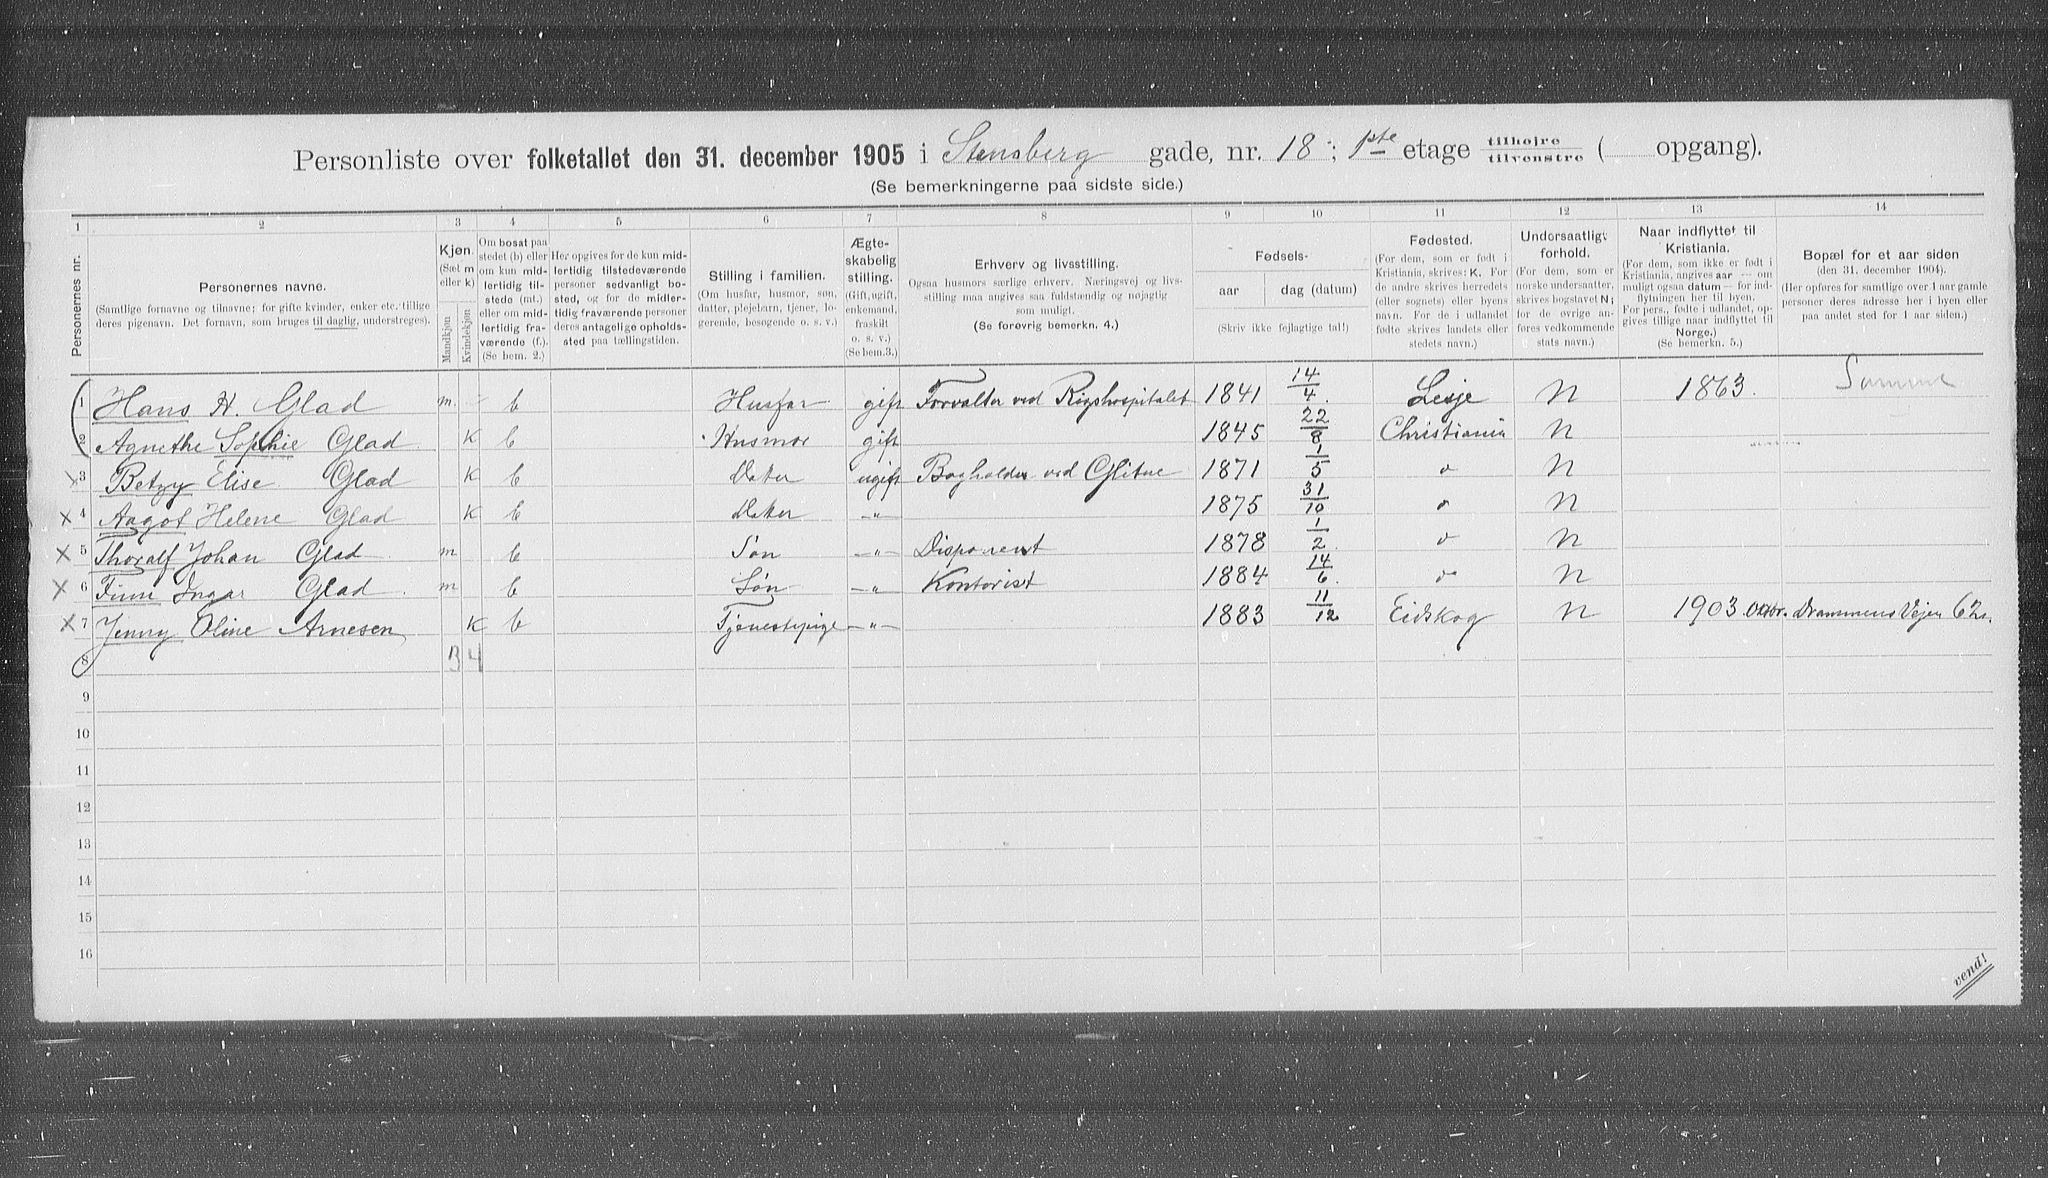 Personliste over folketallet den 31. december 1905 i Stensberg gade, nr. 18; 1ste etage tilhøjre tilvenstre ( opgang).
(Se bemerkningerne paa sidste side.)
1 2 3 4 5 6 7 8 9 10 11 12 13 14
Personernes nr.
Personernes navne.
(Samtlige fornavne og tilnavne; for gifte kvinder, enker etc. tillige
deres pigenavn. Det fornavn, som bruges til daglig, understreges).
Kjøn.
(Sæt m
eller k)
Mandkjøn
Kvindekjøn
Om bosat paa
stedet (b) eller
om kun mid-
lertidig til-
stede (mt.)
eller om mid-
lertidig fra-
værende (f.).
(Se bem. 2.)
Her opgives for de kun mid-
lertidig tilstedeværende
personer sedvanlig bo-
sted, og for de midler-
tidig fraværende personer
deres antagelige opholds-
sted paa tællingstiden.
Stilling i familien.
(Om husfar, husmor, søn,
datter, plejebarn, tjener, lo-
gerende, besøgende o. s. v.)
Ægte-
skabelig
stilling.
(Gift, ugift,
enkemand,
fraskilt
o. s. v.)
(Se bem.3.)
Erhverv og livsstilling.
Ogsaa husmors særlige erhverv. Næringsvej og livs-
stilling maa angives saa fuldstændig og nøjagtig
som muligt.
(Se forøvrig bemerkn. 4.)
Fødsels-
aar
dag (datum)
(Skriv ikke fejlagtige tal!)
Fødested.
(For dem, som er født i
Kristiania, skrives: K. For
de andre skrives herredets
(eller sognets) eller byens
navn. For de i udlandet
fødte skrives landets eller
stedets navn.)
Undersaatligt
forhold.
(For dem, som er
norske undersaatter,
skrives bogstavet N;
for de øvrige an-
føres vedkommende
stats navn.)
Naar indflyttet til
Kristiania.
(For dem, som ikke er født i
Kristiania, angives aar — om
muligt ogsaa datum — for ind-
flytningen her til byen.
For pers., fødte i udlandet, op-
gives tillige naar indflyttet til
Norge.)
(Se bemerkn. 5.)
Bopæl for et aar siden
(den 31. december 1904).
(Her opføres for samtlige over 1 aar gamle
personer deres adresse her i byen eller
paa andet sted for 1 aar siden.)
1 Hans H. Glad m. b Husfar gift Forvalter ved Rigshospitalet 1841 14/4 Lesje N 1863. Samme
2 Agnethe Sophie Glad K b Husmor gift 1845 22/8 Christiania N
x 3 Betzy Elise Glad K b Dater ugift Bogholder ved Glitne 1871 1/5 " N
x 4 Aagot Helene Glad K b Dater —"— 1875 31/10 " N
x 5 Thoralf Johan Glad m b Søn —"— Disponent 1878 1/2 " N
x 6 Finn Ingar Glad m b Søn —"— Kontorist 1884 14/6 " N
x 7 Jenny Oline Arnesen K b Tjenestepige —"— 1883 11/12 Eidskog N 1903 Oktbr. Drammens Vejen
8 3 4
9
10
11
12
13
14
15
16
vend!